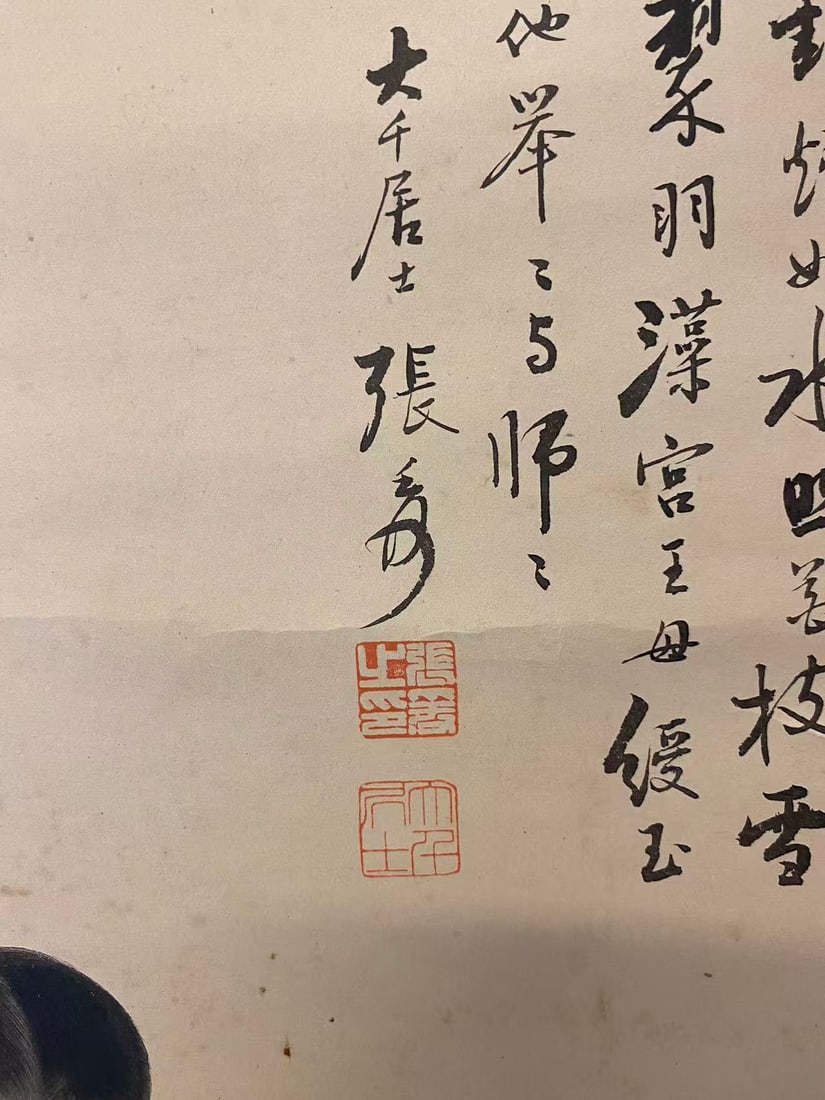 如水照花枝雪
翠羽藻宮王母綬玉
他举〻与师〻
大千居士 張爰
張爰之印
大千居士